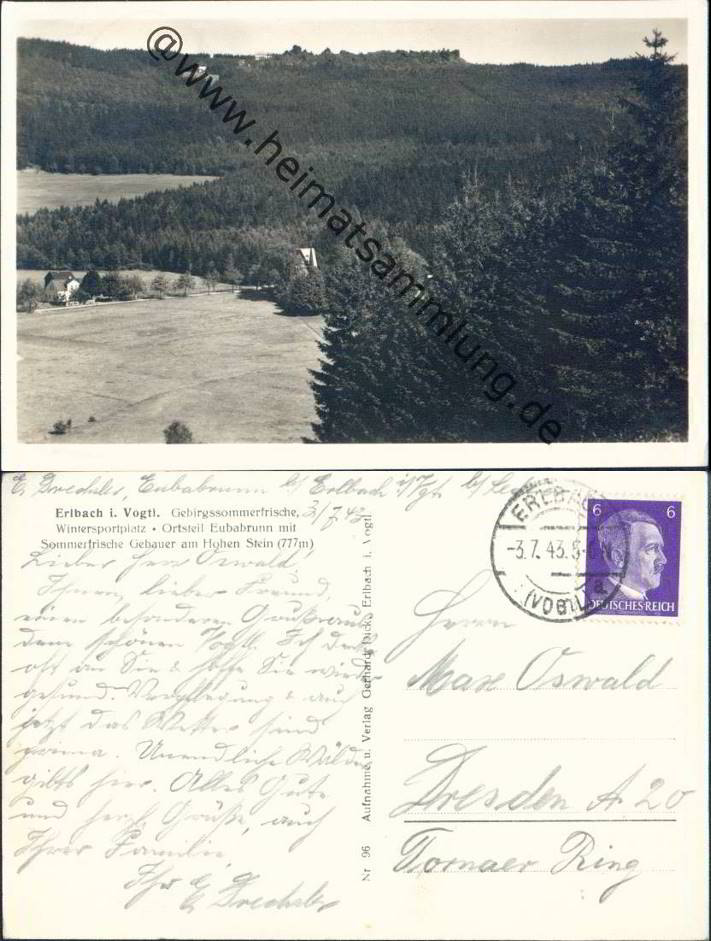 @www.heimatsammlung.de
E. Drechsler, Eubabrunn b/ Erlbach i/Vgt. b/
3/7.43
Erlbach i. Vogtl. Gebirgssommerfrische,
Wintersportplatz • Ortsteil Eubabrunn mit
Sommerfrische Gebauer am Hohen Stein (777m)
Lieber Herr Oswald!
Ihnen, lieber Freund,
einen besonderen Gruß aus
dem schönen Vogtl. Ich denke
oft an Sie & hoffe Sie wieder
gesund. Verpflegung & auch
jetzt das Wetter sind
prima. Unendliche Wälder
gibts hier. Alles Gute
und herzl. Grüße, auch
Ihrer Familie,
Ihr E.
E. Drechsler
Nr 96 Aufnahme u. Verlag Gerhard Dick, Erlbach i. Vogtl.
ERLBACH
-3.7.43.
(VOGTL)
a
6 6
DEUTSCHES REICH
Herrn
Max Oswald
Dresden A 20
Tornaer Ring